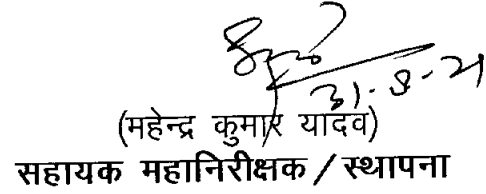 31-8-21
(महेन्द्र कुमार यादव)
सहायक महानिरीक्षक / स्थापना